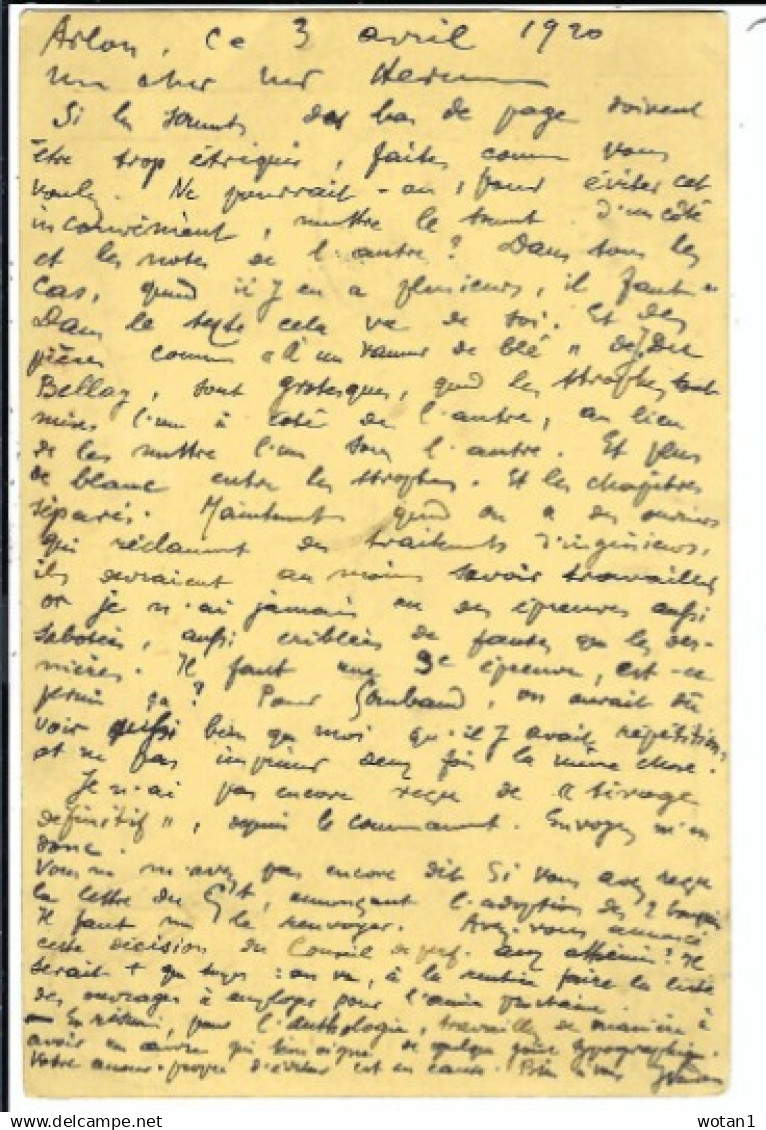 Arlon, ce 3 avril 1920
Mon cher
Si les sonnets des bas de page doivent
être trop étriqués, faites comme vous
voulez. Ne pourrait-on, pour éviter cet
inconvénient, mettre le d'un côté
et les notes de l'autre ? Dans tous les
cas, quand il y en a plusieurs, il faut
Dans le texte cela va de soi. Et des
pièces comme « A un vanneur de blé » de J. Du
Bellay, sont grotesques, quand les strophes sont
mises l'une à côté de l'autre, au lieu
de les mettre l'une sous l'autre. Et plus
de blanc entre les strophes. Et les chapitres
séparés. Maintenant quand on a des ouvriers
qui réclament des traitements d'ingénieurs,
ils devraient au moins savoir travailler
or je n'ai jamais eu des épreuves aussi
sabotées, aussi criblées de fautes que les der-
nières. Il faut une 3e épreuve, est-ce
permis ça ? Pour Gombaud, on aurait dû
voir aussi bien que moi qu'il y avait répétition,
et ne pas imprimer deux fois la même chose.
Je n'ai pas encore reçu de « tirage
définitif », depuis le commencement. Envoyez m'en
donc.
Vous ne m'avez pas encore dit si vous avez reçu
la lettre du Gvt, annonçant l'adoption des 2
Il faut me la renvoyer. Avez-vous annoncé
cette décision du Conseil de perf. aux athénées ? Il
serait + que temps : on va, à la rentrée faire la liste
des ouvrages à employer pour l'année prochaine.
— En résumé, pour l'anthologie, travaillez de manière à
avoir un œuvre qui témoigne de quelque goût typographique.
Votre amour-propre d'éditeur est en cause. Bien à vous
wotan1